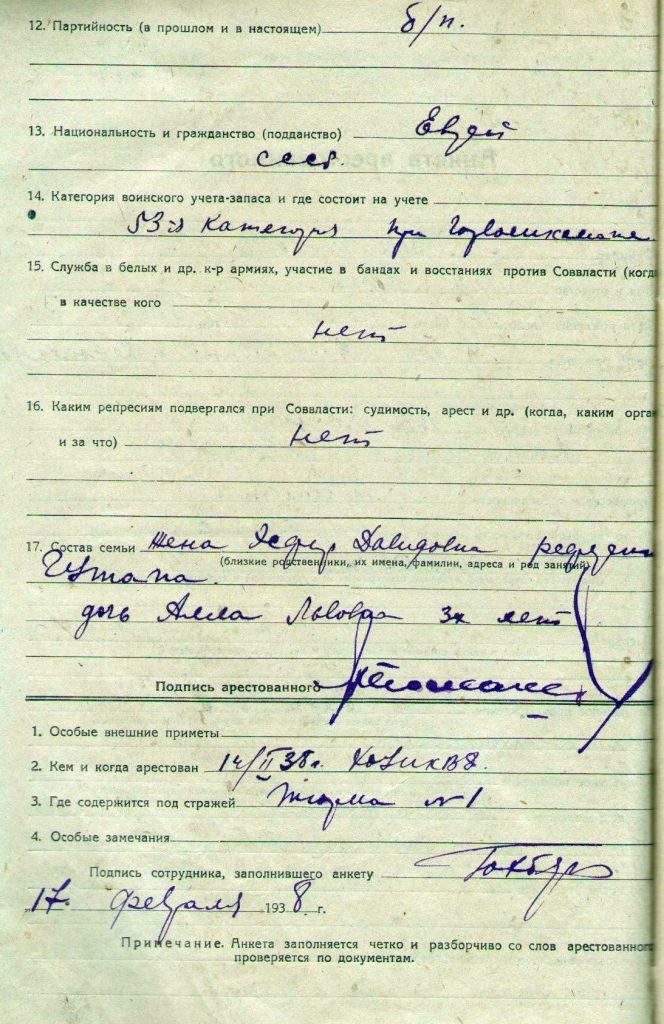 12. Партийность (в прошлом и в настоящем) б/п.
13. Национальность и гражданство (подданство) Еврей
СССР.
14. Категория воинского учета-запаса и где состоит на учете
53-я категория при Горвоенкомате
15. Служба в белых и др. к-р армиях, участие в бандах и восстаниях против Соввласти (когд
в качестве кого
нет
16. Каким репресиям подвергался при Соввласти: судимость, арест и др. (когда, каким орга
и за что) нет
17. Состав семьи Жена Эсфирь Давидовна
(близкие родственники, их имена, фамилии, адреса и род занятий)
дочь Алла Львовна 3х лет
Подпись арестованного
1. Особые внешние приметы
2. Кем и когда арестован 14/II 38 г. ХО НКВД.
3. Где содержится под стражей Тюрьма №1
4. Особые замечания
Подпись сотрудника, заполнившего анкету
17. февраля 1938 г.
Примечание. Анкета заполняется четко и разборчиво со слов арестованного
проверяется по документам.